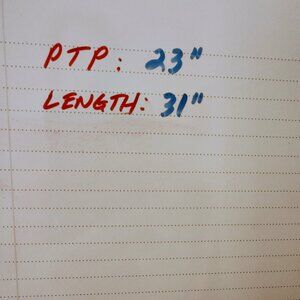 PTP: 23"
LENGTH: 31"